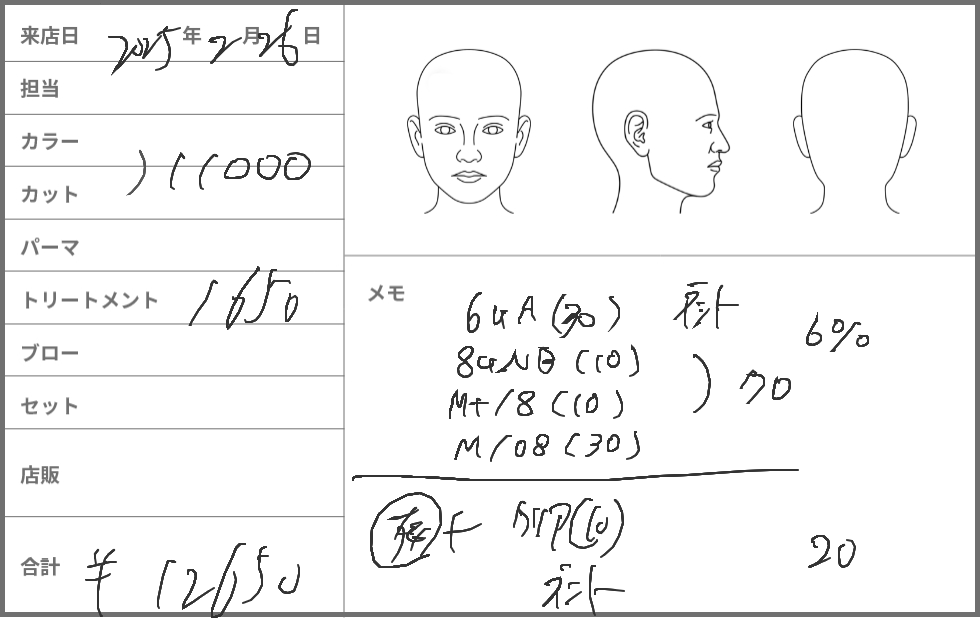 来店日 2025年2月26日
担当
カラー
) 11000
カット
パーマ
トリートメント 1650
ブロー
セット
店販
合計 ¥ 12650
メモ
6GA (30)
6%
8GNB (10)
) 70
M+/8 (10)
M/08 (30)
+ (10)
20